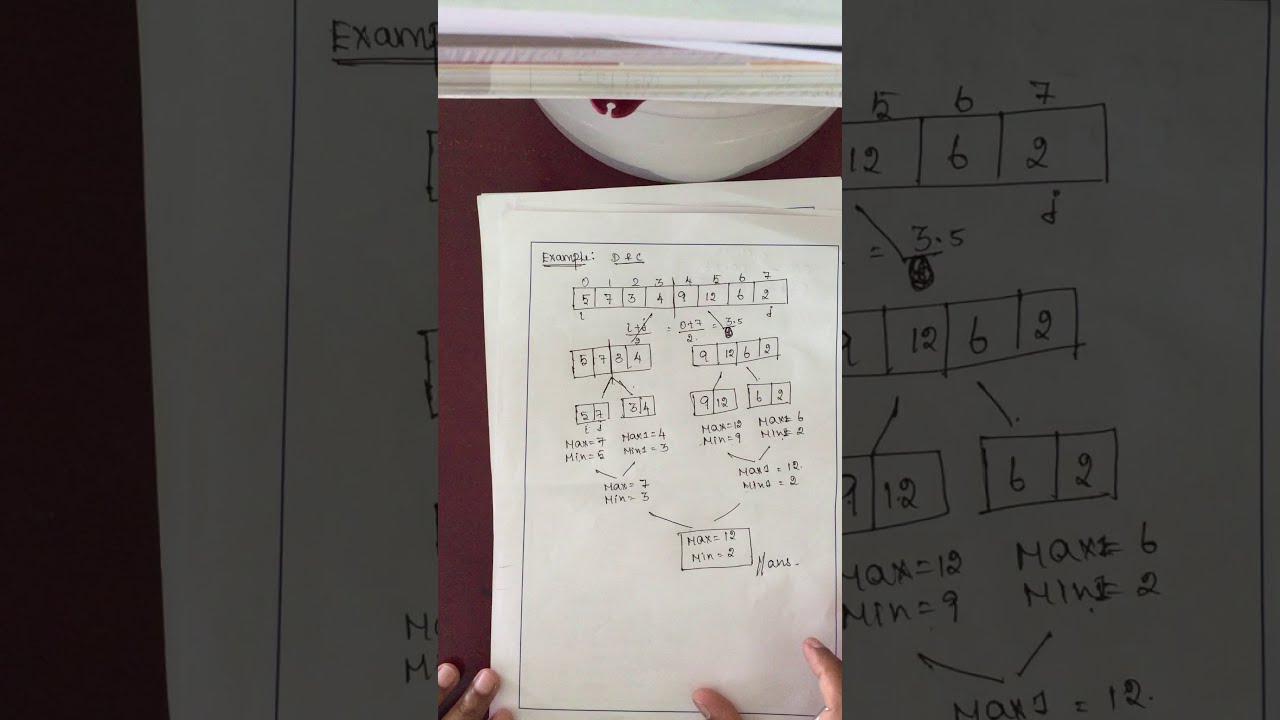 Example: D&C
0 1 2 3 4 5 6 7
5 7 3 4 9 12 6 2
i j
i+j/2 = 0+7/2 = 3.5
5 7 3 4 9 12 6 2
5 7 3 4 9 12 6 2
i j
Max=7 Max1=4 Max=12 Max1=6
Min=5 Min1=3 Min=9 Min1=2
Max=7 Max1=12.
Min=3 Min1=2
Max=12
Min=2
ans.